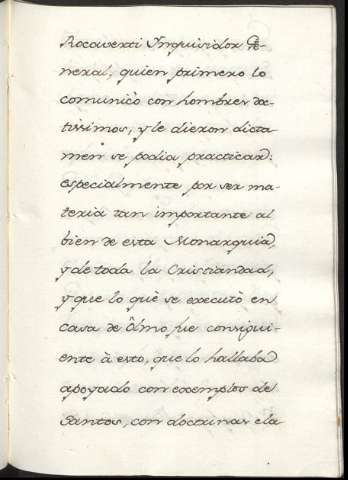 Rocaverti Inquisidor Ge-
neral, quien primero lo
comunicò con hombres doc-
tissimos, y le dieron dicta-
men se podia practicar:
especialmente por ser ma-
teria tan importante al
bien de esta Monarquia,
y de toda la Cristiandad,
y que lo què se executò en
casa de Olmo fue consigui-
ente à esto, que lo hallaba
apoyado con exemplos de
Santos, con doctrinas cla